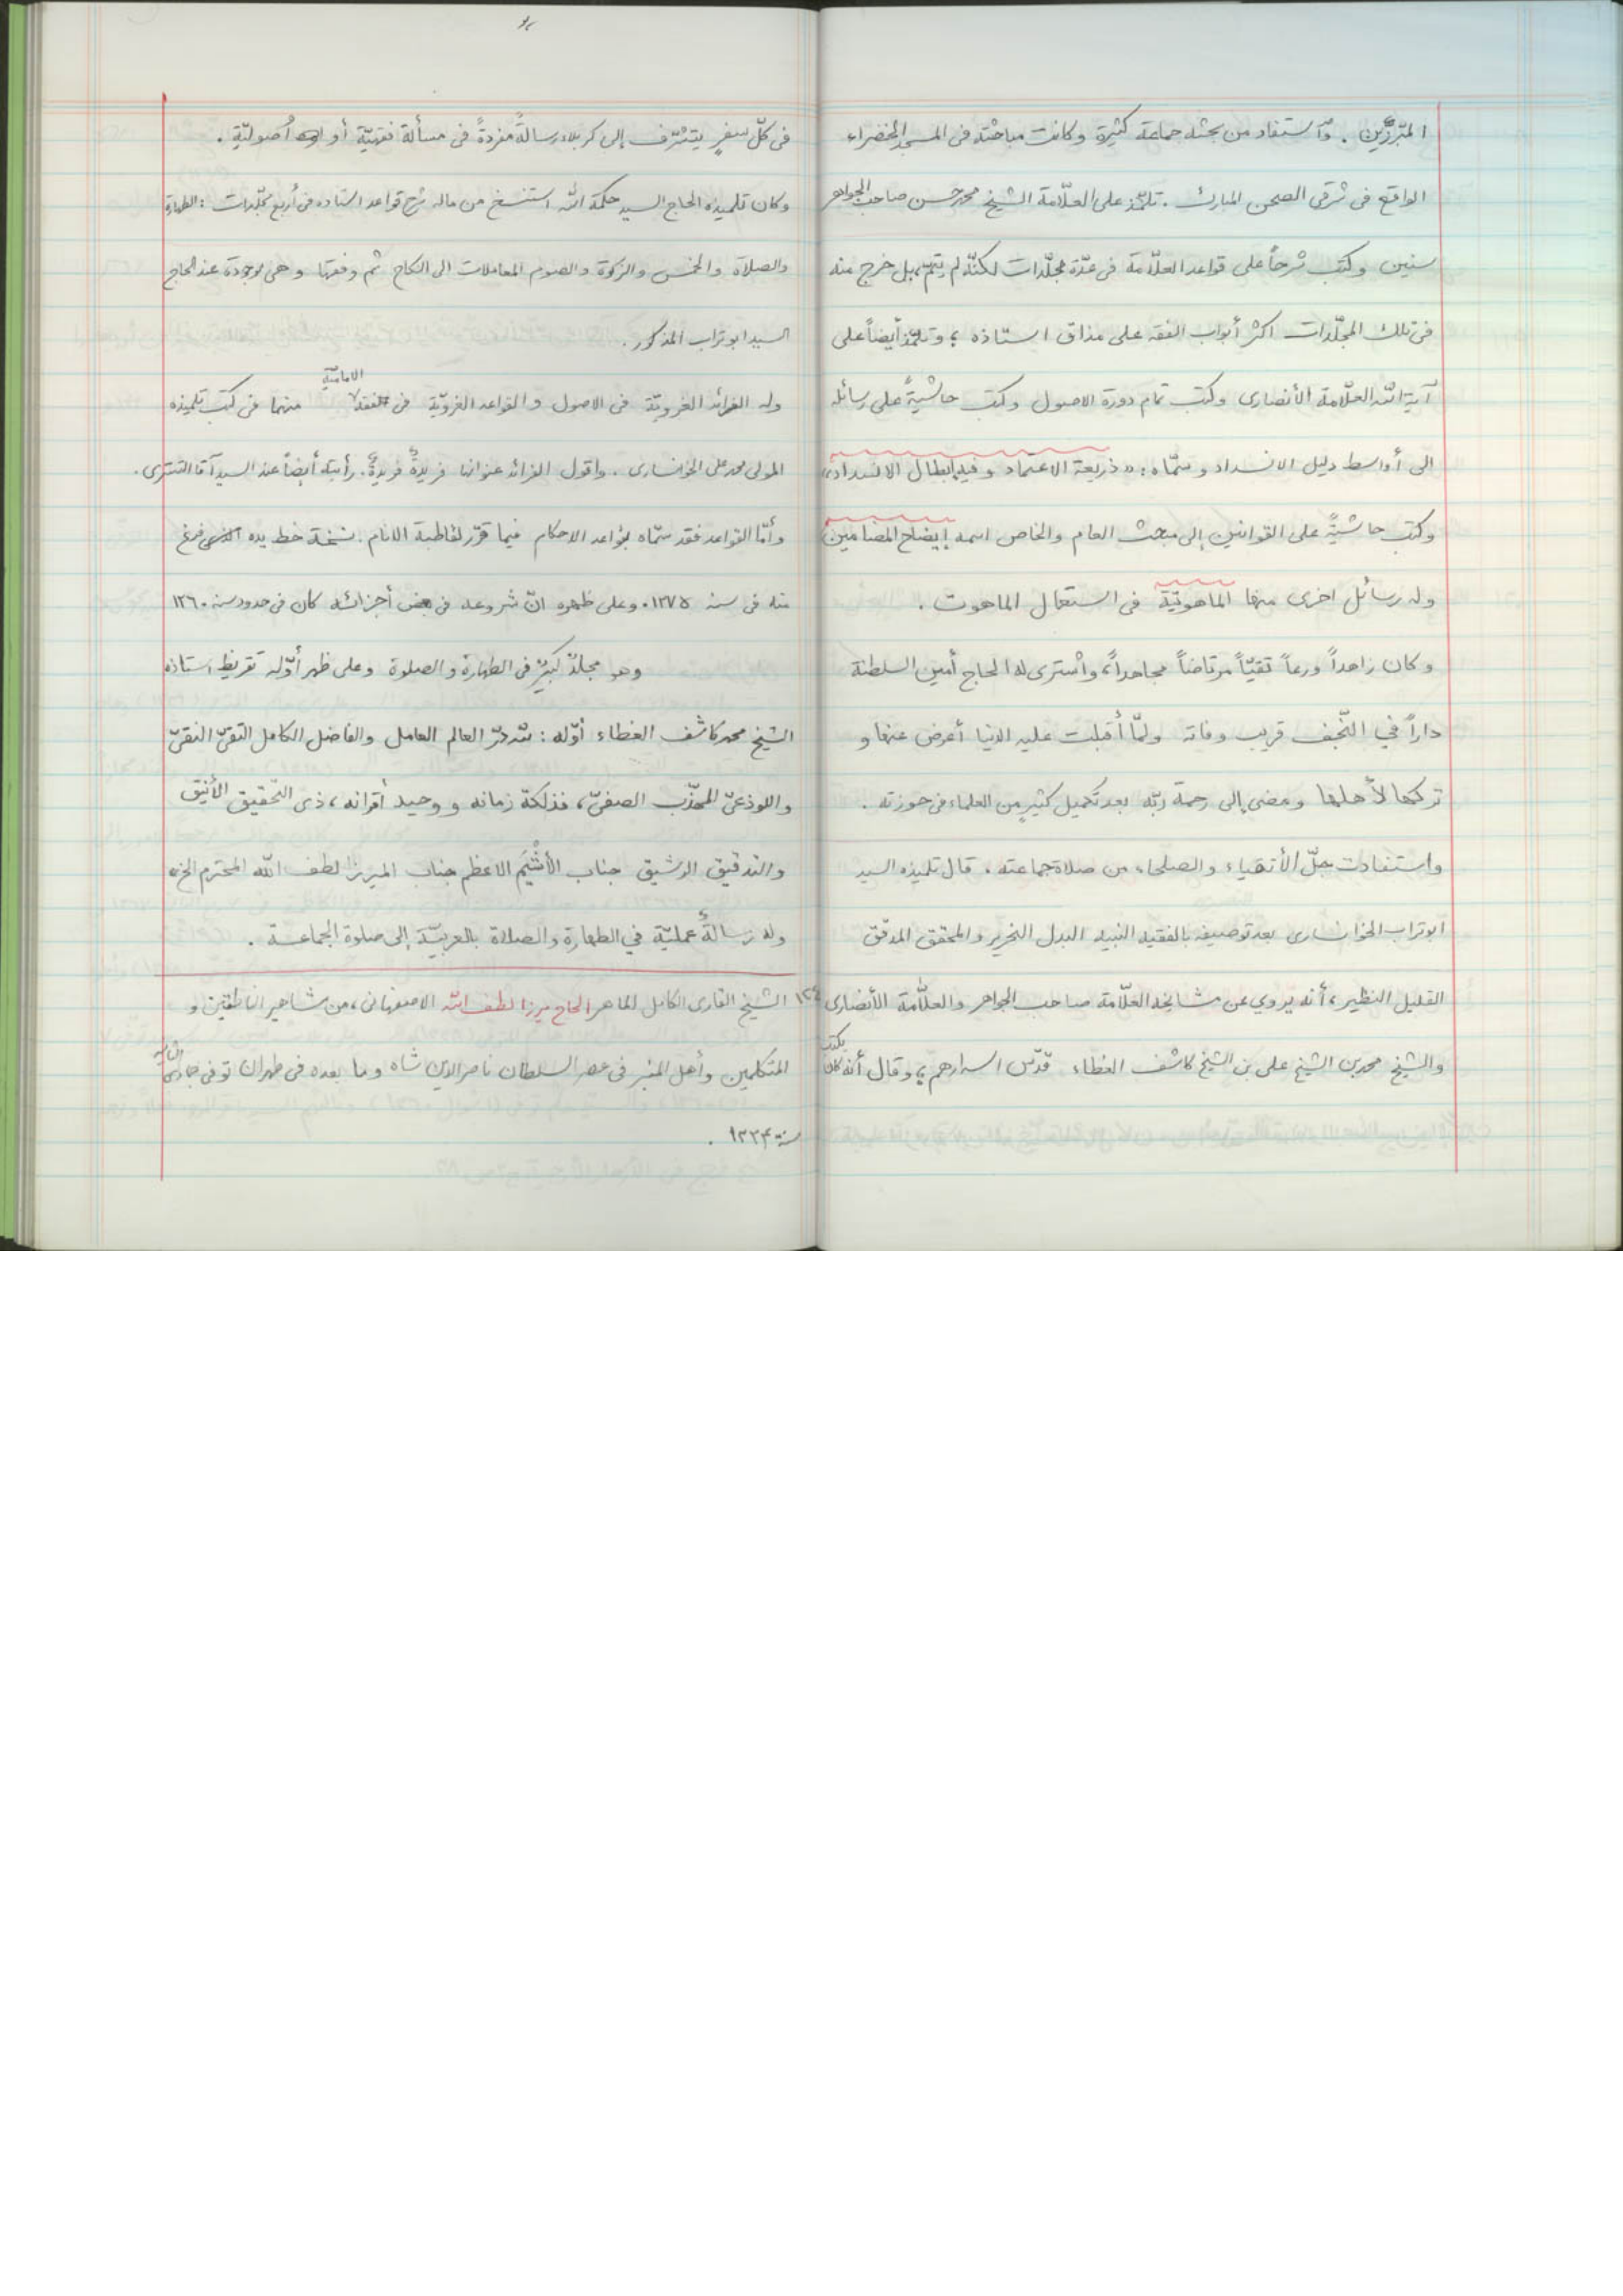 المبرّزين . وٱستفاد من بحثه جماعة كثيرة وكانت مباحثته فى المسجد الخضراء
الواقع فى شرقى الصحن المبارك . تلمّذ على العلّامة الشيخ محمد حسن صاحب الجواهر
سنين وكتب شرحاً على قواعد العلّامة فى عدّة مجلّدات لكنّه لم يتمّ بل خرج منه
فى تلك المجلّدات اكثر أبواب الفقه على مذاق استاذه ؛ وتلمّذ أيضاً على
آية الله العلّامة الأنصارى وكتب تمام دورة الاصول وكتب حاشيةً على رسائله
الى أواسط دليل الانسداد وسمّاه : «ذريعة الاعتماد وفيه إبطال الانسداد»
وكتب حاشيةً على القوانين إلى مبحث العام والخاص اسمه إيضاح المضامين
وله رسائل اخرى منها الماهوتيّة فى استعمال الماهوت .
وكان زاهداً ورعاً تقيّاً مرتاضاً مجاهداً، وٱشترى له الحاج أمين السلطنة
داراً في النّجف قريب وفاته ولمّا أقبلت عليه الدنيا أعرض عنها و
تركها لأهلها ومضى إلى رحمة ربّه بعد تكميل كثيرٍ من العلماء فى حوزته .
واستفادت جلّ الأتقياء والصلحاء من صلاة جماعته . قال تلميذه السيد
ابوتراب الخوانسارى بعد توصيفه بالفقيه النبيه البدل النحرير والمحقق المدقّق
القليل النظير ، أنه يروي عن مشايخه العلّامة صاحب الجواهر والعلّامة الأنصارى
والشيخ محمد بن الشيخ على بن الشيخ كاشف الغطاء قدّس اسرارهم ؛ وقال أنه كان يكتب
فى كلّ سفرٍ يتشرّف إلى كربلاء رسالةً مفردةً فى مسألة فقهيّة أو أُصوليّة .
وكان تلميذه الحاج السيد حكمة الله استنسخ من ماله شرح قواعد استاده فى أربع مجلّدات : الطهارة
والصلاة والخمس والزكوة والصوم المعاملات الى النكاح ثم وقفها وهى موجودة عند الحاج
السيد ابوتراب المذكور .
وله الفرائد الغرويّة فى الاصول والقواعد الغرويّة فى الفقه الاماميّة منهما فى كتب تلميذه
المولى محمد على الخوانسارى . واقول الفرائد عنوانها فريدةٌ فريدةٌ . رأيته أيضاً عند السيد آقا التسترى .
وأمّا القواعد فقد سمّاه بقواعد الاحكام فيما قرّر لقاطبة الانام . نسخة خط يده فرغ
منه فى سنه ١٢٧٥ . وعلى ظهره انّ شروعه فى بعض أجزائه كان فى حدود سنه ١٢٦٠
وهو مجلدٌ كبيرٌ فى الطهارة والصلوة وعلى ظهر أوّله تقريظ استاذه
الشيخ محمد كاشف الغطاء أوّله : لله درّ العالم العامل والفاضل الكامل التقىّ النقىّ
واللوذعىّ المهذّب الصفىّ، فذلكة زمانه ووحيد أقرانه ، ذى التحقيق الأنيق
والتدقيق الرشيق جناب الأشْيَم الاعظم جناب الميرزا لطف الله المحترم الخ ..
وله رسالةٌ عمليّة في الطهارة والصلاة بالعربيّة إلى صلوة الجماعة .
١٢٤ الشيخ القارى الكامل الماهر الحاج ميرزا لطف الله الاصفهانى ، من مشاهير الناطقين و
المتكلمين وأهل المنبر فى عصر السلطان ناصر الدين شاه وما بعده فى طهران توفى جمادى الثانيه
سنة ١٣٣۴ .